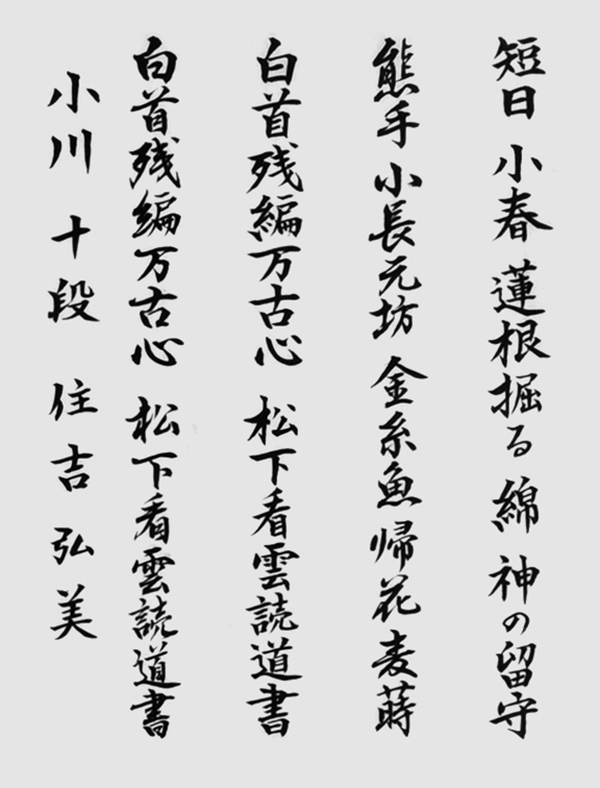 短日 小春 蓮根掘る 綿 神の留守
熊手 小長元坊 金糸魚 帰花 麦蒔
白首残編万古心 松下看雲読道書
白首残編万古心 松下看雲読道書
小川 十段 住吉 弘美